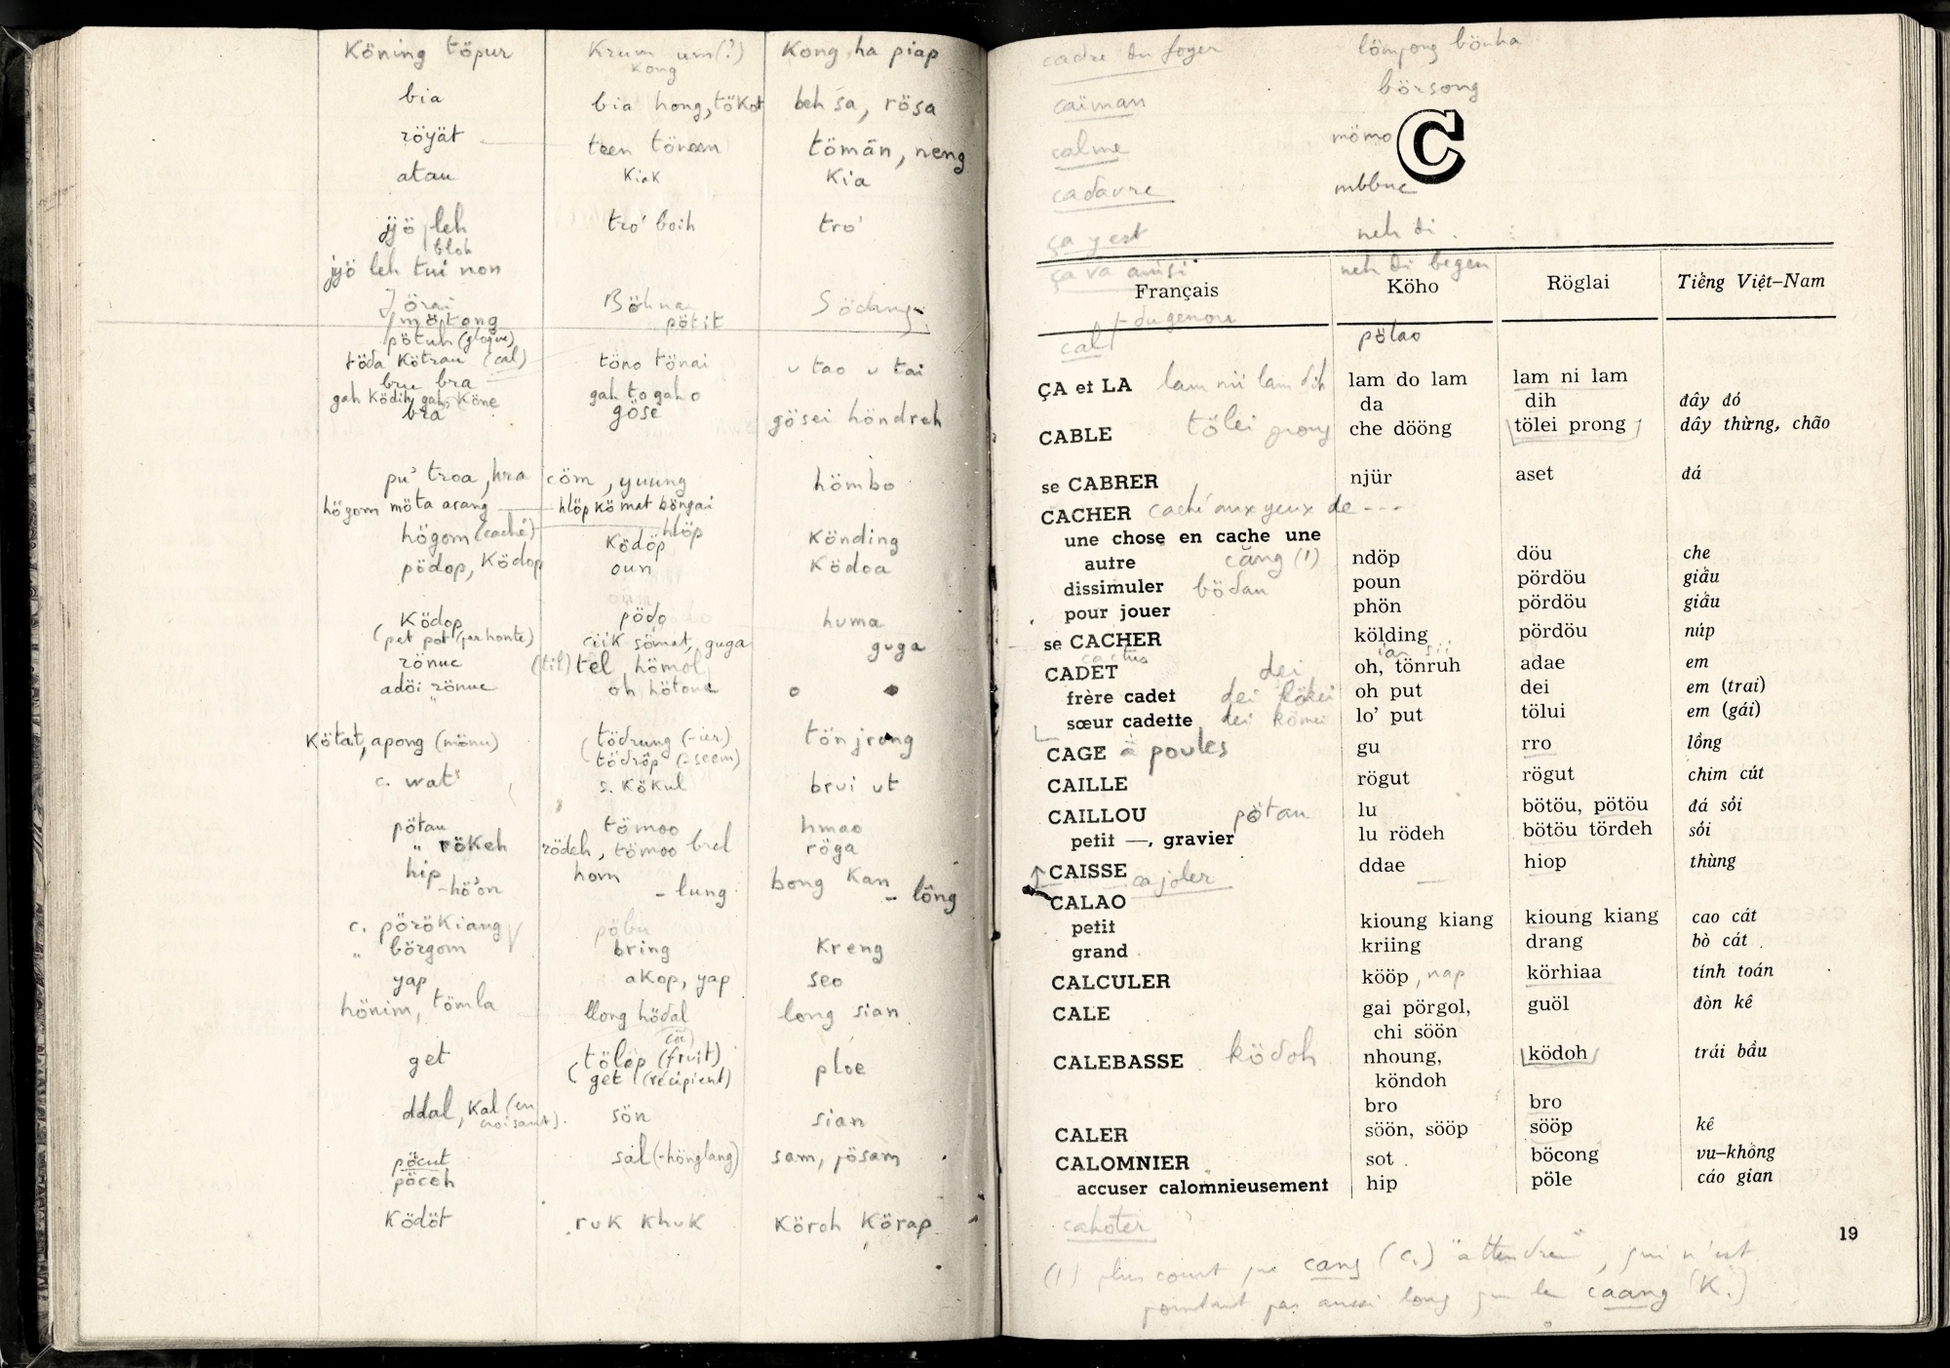 Köning töpur Krum um(?) Kong ha piap
Kong
bia bia hong, tökot beh sa, rösa
röyät teen töneen tömän, neng
atau kiak kia
jyö leh tro' boih tro'
bloh
jyö leh tui non
Jörai Böhnar Södang
mötong pötit
pötuh
töda kötrau (cal) töno tönai u tao u tai
brue bra
gah ködih, gah köne gah to gah o
bra göse gösei höndreh
pu' troa, hra cöm, yuung hömbo
högom möta arang hlöp kö mat böngai
högom (caché) ködöp hlöp könding
pödop, ködop oun ködoa
ködop pödo huma
(pet pot (par honte) ciik sömat, guga guga
rönuc (til) tel hömol
adöi rönuc oh hötonu o
kötat, apong (mönu) tödrung (-ier) tön jrong
tödröp (-seem)
c. wat s. kökul brui ut
pötau tömoo hmao
" rökeh rödeh, tömoo brel röga
hip hom bong kan
-hö'on -lung -lông
c. pörökiang pöbu
" börgom bring kreng
yap akop, yap seo
hönim, tömla llong hödal long sian
get tölöp (fruit) ploe
get (récipient)
ddal, kal (en croisant) sön sian
pöcut sal (-hönglang) sam, pösam
pöceh
ködöt ruk khuk köroh körap
cadre du foyer lömpong bönha
caïman börsong
calme mömo
C
cadavre mbbuc
ça y est neh di
ça va ainsi neh di begen
Français Köho Röglai Tiếng Việt-Nam
- du genou
cal pölao
ÇA et LA lam nii lam dih lam do lam lam ni lam
da dih đây đó
CABLE tölei prong che dööng tölei prong dây thừng, chão
se CABRER njür aset đá
CACHER caché aux yeux de ---
une chose en cache une
autre cäng (1) ndöp döu che
dissimuler bödau poun pördöu giấu
pour jouer phön pördöu giấu
se CACHER kölding pördöu núp
cactus
CADET dei oh, tönruh adae em
frère cadet dei lökei oh put dei em (trai)
sœur cadette dei kömei lo' put tölui em (gái)
CAGE à poules gu rro lồng
CAILLE rögut rögut chim cút
CAILLOU pötau lu bötöu, pötöu đá sỏi
petit —, gravier lu rödeh bötöu tördeh sỏi
CAISSE ddae hiop thùng
cajoler
CALAO
petit kioung kiang kioung kiang cao cát
grand kriing drang bò cát
CALCULER kööp, nap körhiaa tính toán
CALE gai pörgol, guöl đòn kê
chi söön
CALEBASSE ködoh nhoung, ködoh trái bầu
köndoh
bro bro
CALER söön, sööp sööp kê
CALOMNIER sot böcong vu-khống
accuser calomnieusement hip pöle cáo gian
cahoter
19
(1) plus court que cang (C.) "attendre", qui n'est
pourtant pas aussi long que le caang (K.)